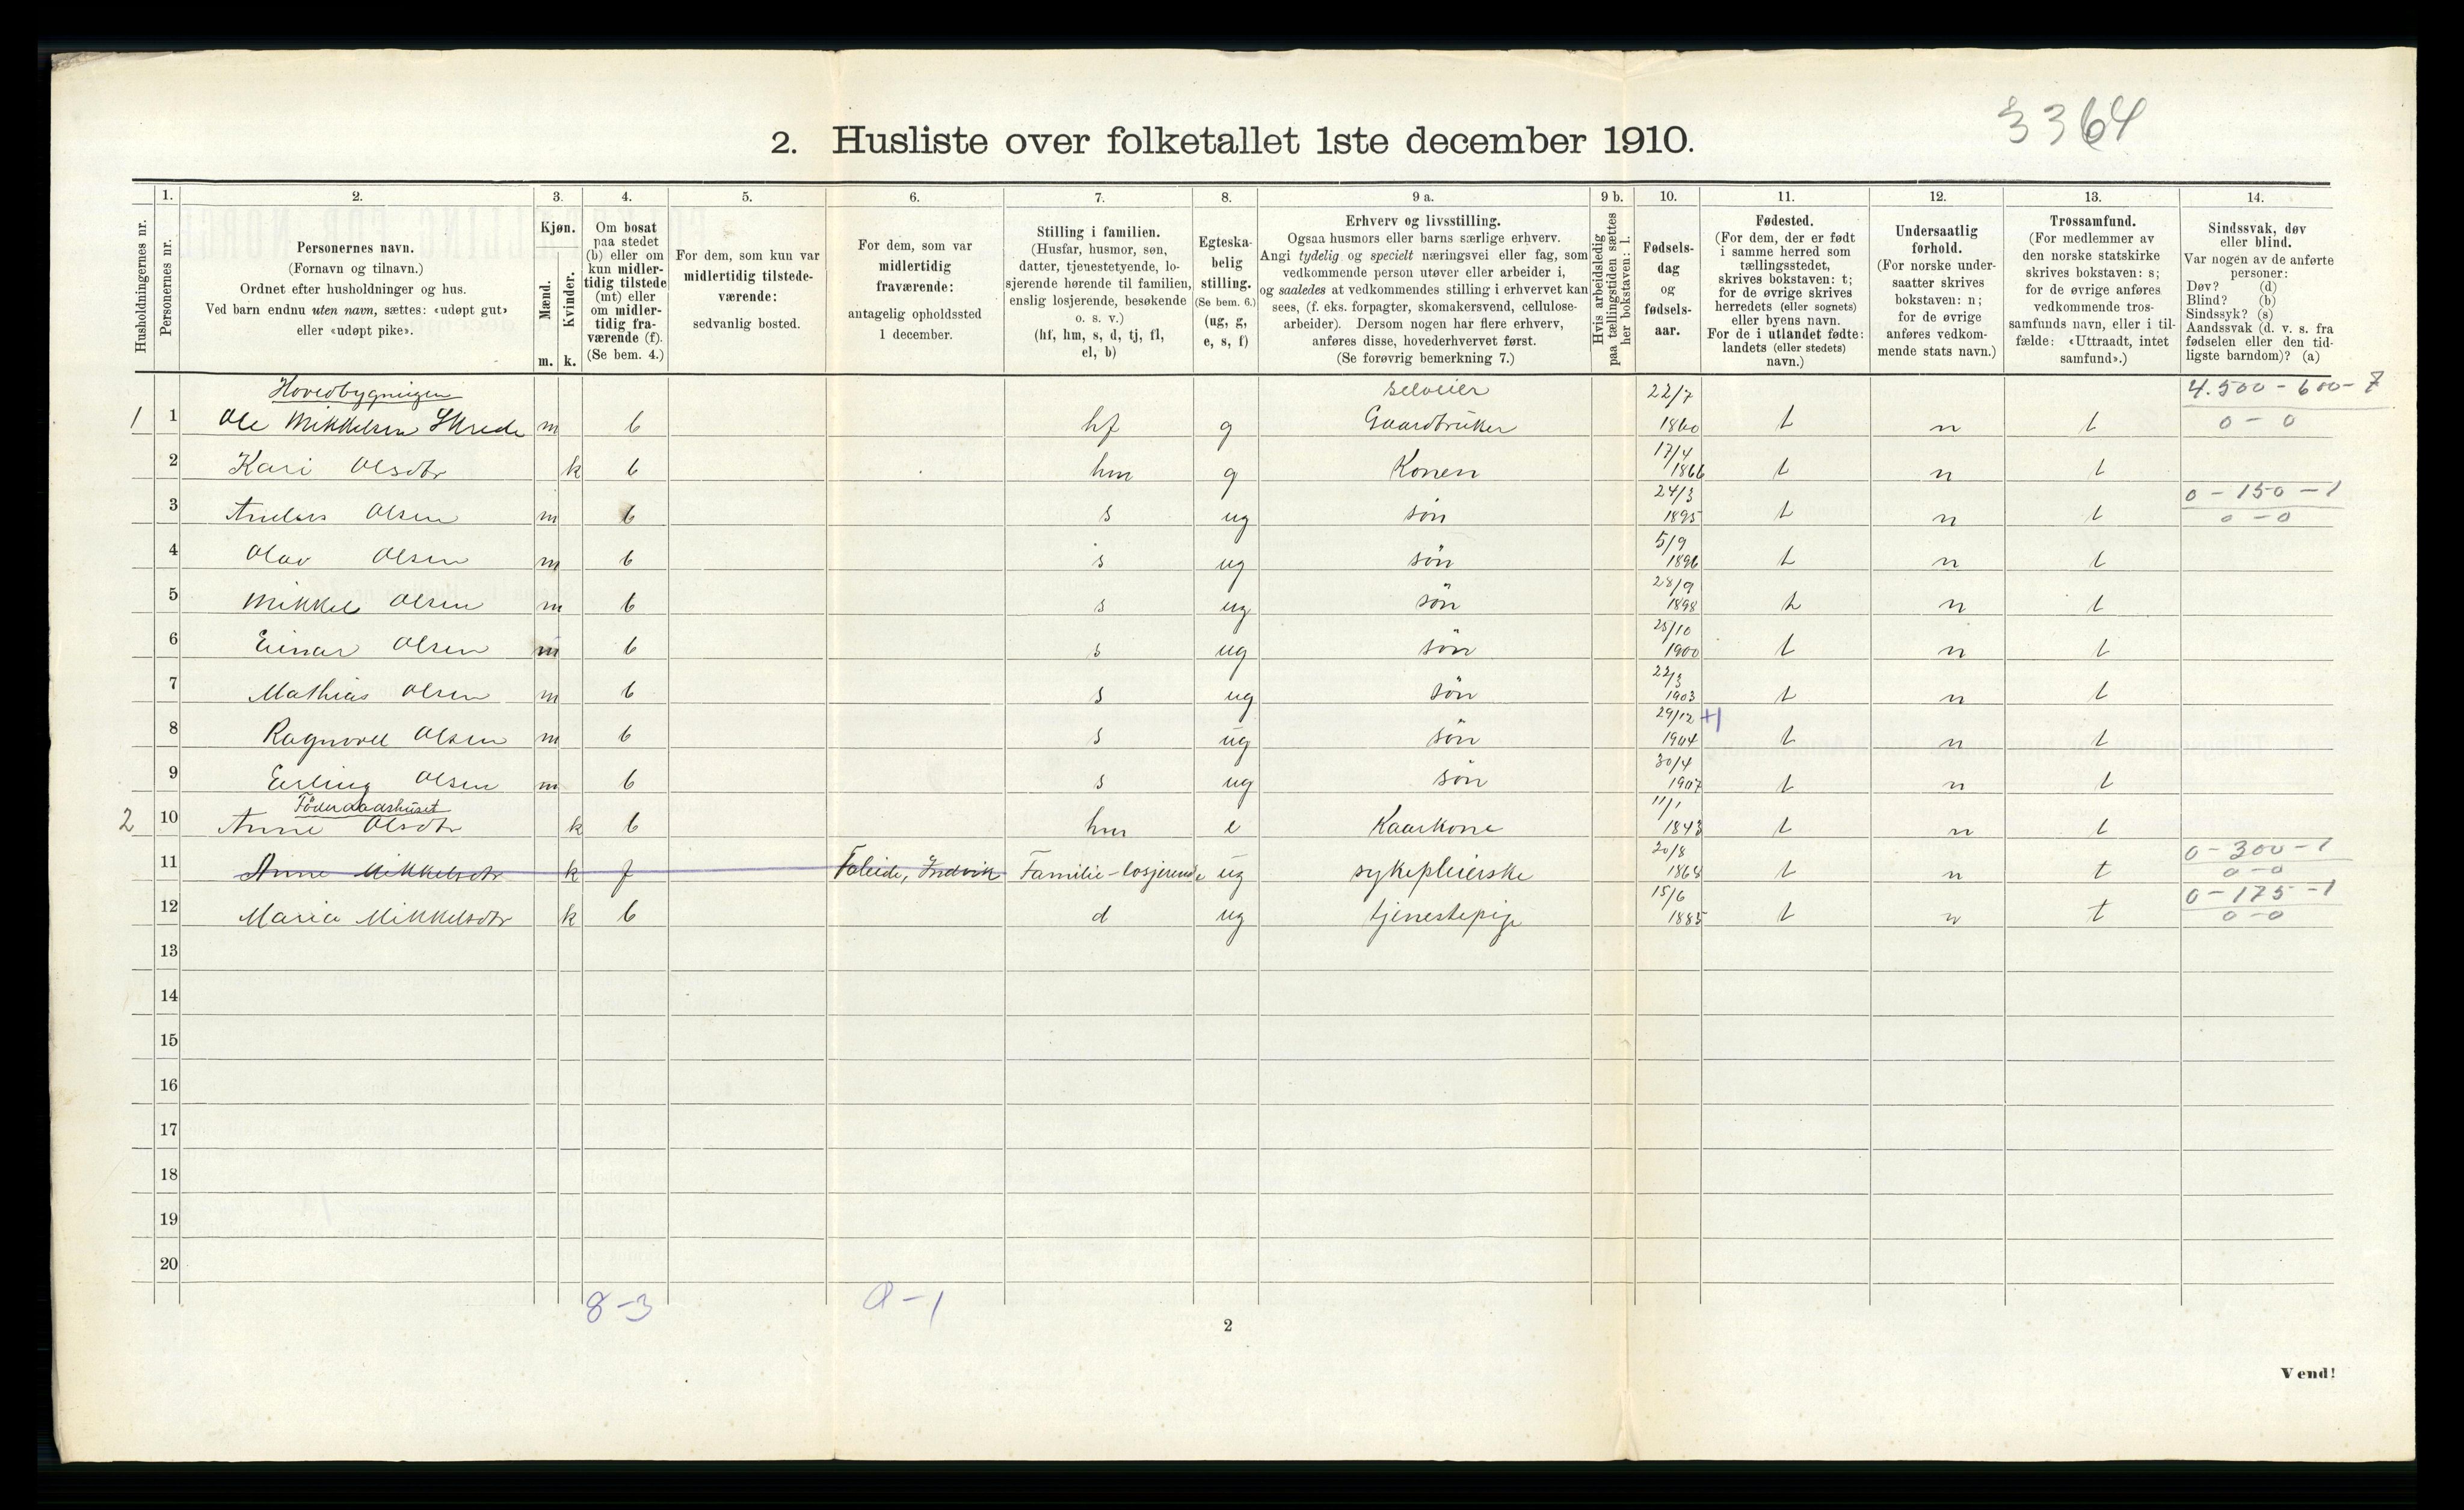 3364
2. Husliste over folketallet 1ste december 1910.
Husholdningernes nr.
1.
Personernes nr.
2.
Personernes navn.
(Fornavn og tilnavn.)
Ordnet efter husholdninger og hus.
Ved barn endnu uten navn, sættes: «udøpt gut»
eller «udøpt pike».
3.
Kjøn.
Mænd.
Kvinder.
m. k.
4.
Om bosat
paa stedet
(b) eller om
kun midler-
tidig tilstede
(mt) eller
om midler-
tidig fra-
værende (f).
(Se bem. 4.)
5.
For dem, som kun var
midlertidig tilstede-
værende:
sedvanlig bosted.
6.
For dem, som var
midlertidig
fraværende:
antagelig opholdssted
1 december.
7.
Stilling i familien.
(Husfar, husmor, søn,
datter, tjenestetyende, lo-
sjerende hørende til familien,
enslig losjerende, besøkende
o. s. v.)
(hf, hm, s, d, tj, fl,
el, b)
8.
Egteska-
belig
stilling.
(Se bem. 6.)
(ug, g,
e, s, f)
9 a.
Erhverv og livsstilling.
Ogsaa husmors eller barns særlige erhverv.
Angi tydelig og specielt næringsvei eller fag, som
vedkommende person utøver eller arbeider i,
og saaledes at vedkommendes stilling i erhvervet kan
sees, (f. eks. forpagter, skomakersvend, cellulose-
arbeider). Dersom nogen har flere erhverv,
anføres disse, hovederhvervet først.
(Se forøvrig bemerkning 7.)
9 b.
Hvis arbeidsledig
paa tællingstiden sættes
her bokstaven: l.
10.
Fødsels-
dag
og
fødsels-
aar.
11.
Fødested.
(For dem, der er født
i samme herred som
tællingsstedet,
skrives bokstaven: t;
for de øvrige skrives
herredets (eller sognets)
eller byens navn.
For de i utlandet fødte:
landets (eller stedets)
navn.)
12.
Undersaatlig
forhold.
(For norske under-
saatter skrives
bokstaven: n;
for de øvrige
anføres vedkom-
mende stats navn.)
13.
Trossamfund.
(For medlemmer av
den norske statskirke
skrives bokstaven: s;
for de øvrige anføres
vedkommende tros-
samfunds navn, eller i til-
fælde: «Uttraadt, intet
samfund».)
14.
Sindssvak, døv
eller blind.
Var nogen av de anførte
personer:
Døv? (d)
Blind? (b)
Sindssyk? (s)
Aandssvak (d. v. s. fra
fødselen eller den tid-
ligste barndom)? (a)
Hovedbygningen selveier 22/7 4.500 - 600 - 7
1 1 Ole Mikkelsen Skrede m b hf g Gaardbruker 1860 t n t 0 - 0
2 Kari Olsdtr k b hm g Konen 17/4 1866 t n t
3 Anders Olsen m b s ug søn 24/3 1895 t n t 0 - 150 - 1 0 - 0
4 Olav Olsen m b s ug søn 5/9 1896 t n t
5 Mikkel Olsen m b s ug søn 28/9 1898 t n t
6 Einar Olsen m b s ug søn 25/10 1900 t n t
7 Mathias Olsen m b s ug søn 22/3 1903 t n t
8 Ragnvall Olsen m b s ug søn 29/12 1904 +1 t n t
9 Erling Olsen m b s ug søn 30/4 1907 t n t
Föderaadshuset
2 10 Anne Olsdtr k b hm e Kaarkone 11/1 1843 t n t
11 Anne Mikkelsdtr k f Faleide, Indvik Familie-losjerende ug sykepleierske 20/8 1868 t n t 0 - 300 - 1 0 - 0
12 Maria Mikkelsdtr k b d ug tjenestepige 15/6 1885 t n t 0 - 175 - 1 0 - 0
13
14
15
16
17
18
19
20
8 - 3
0 - 1
2
Vend!